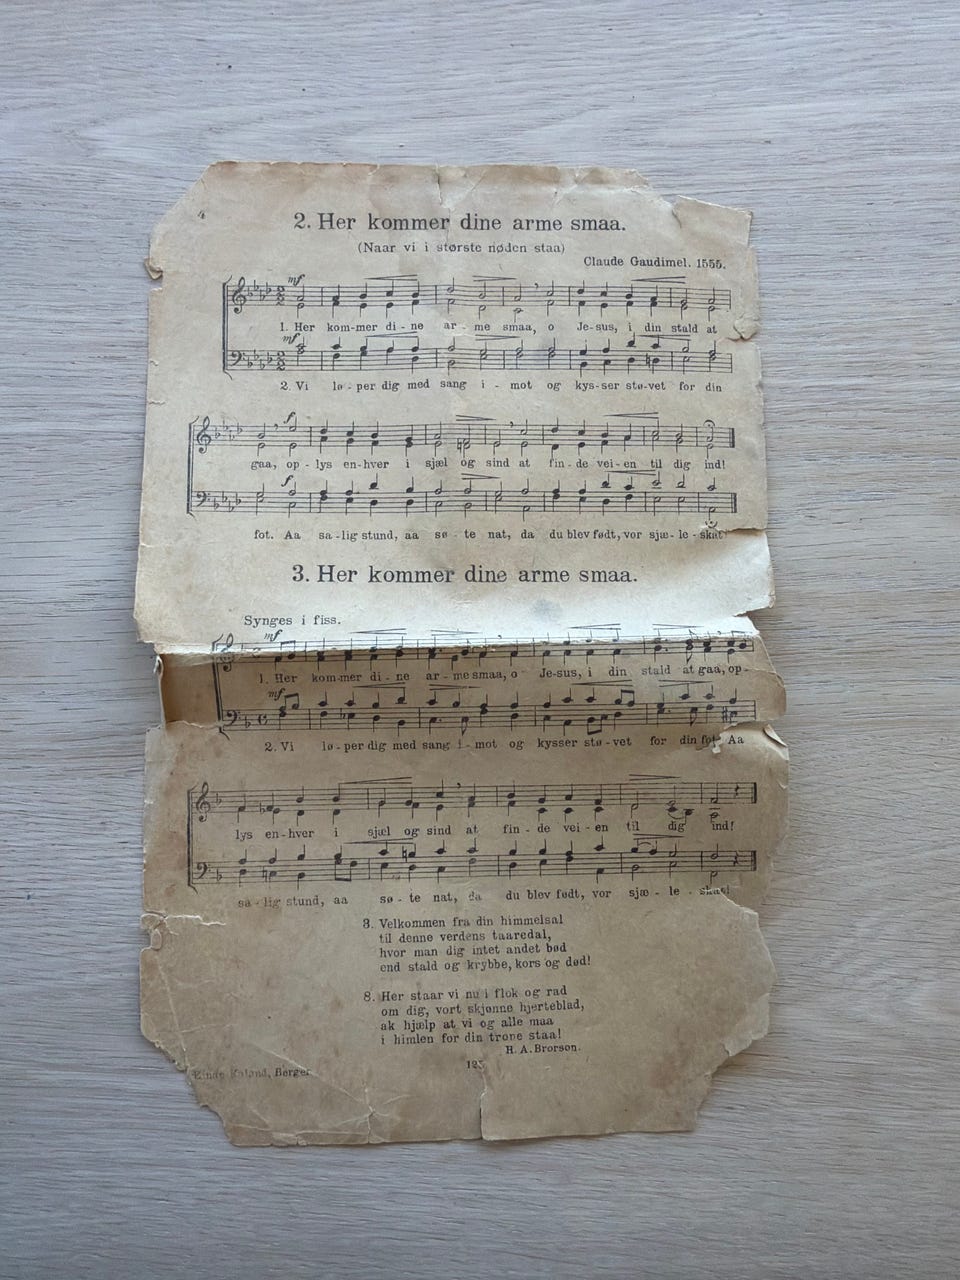 4
2. Her kommer dine arme smaa.
(Naar vi i største nøden staa)
Claude Gaudimel. 1555.
mf
1. Her kom-mer di - ne ar - me smaa, o Je-sus, i din stald at
mf
2. Vi lø - per dig med sang i - mot og kys-ser stø-vet for din
f
gaa, op - lys en-hver i sjæl og sind at fin - de vei - en til dig ind!
f
fot. Aa sa - lig stund, aa sø - te nat, da du blev født, vor sjæ - le - skat!
3. Her kommer dine arme smaa.
Synges i fiss.
mf
1. Her kom-mer di - ne ar - me smaa, o Je-sus, i din stald at gaa, op-
mf
2. Vi lø - per dig med sang i - mot og kysser stø - vet for din fot. Aa
lys en-hver i sjæl og sind at fin - de vei - en til dig ind!
sa - lig stund, aa sø - te nat, da du blev født, vor sjæ - le - skat!
3. Velkommen fra din himmelsal
til denne verdens taaredal,
hvor man dig intet andet bød
end stald og krybbe, kors og død!
8. Her staar vi nu i flok og rad
om dig, vort skjønne hjerteblad,
ak hjælp at vi og alle maa
i himlen for din trone staa!
H. A. Brorson.